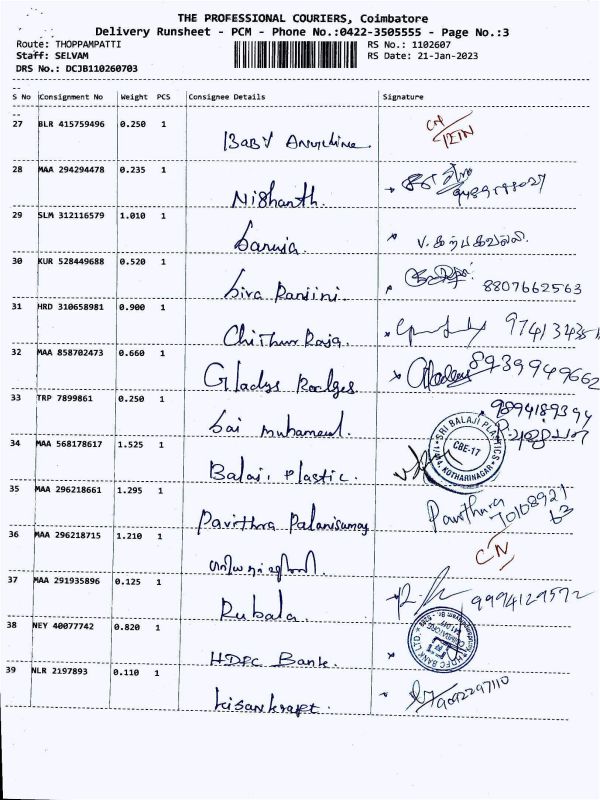 THE PROFESSIONAL COURIERS, Coimbatore
Delivery Runsheet - PCM - Phone No.:0422-3505555 - Page No.:3
Route: THOPPAMPATTI RS No.: 1102607
Staff: SELVAM RS Date: 21-Jan-2023
DRS No.: DCJB110260703
S No Consignment No Weight PCS Consignee Details Signature
27 BLR 415759496 0.250 1
28 MAA 294294478 0.235 1 Nishanth.
29 SLM 312116579 1.010 1
30 KUR 528449688 0.520 1 Siva Ranjini. 8807662563
31 HRD 310658981 0.900 1 Chithur Raja.
32 MAA 858702473 0.660 1 Gladys Rodges 8939949662
33 TRP 7899861 0.250 1 Sai muhamed. 9894189394
34 MAA 568178617 1.525 1 Balaji Plastic. SRI BALAJI PLASTICS CBE-17 KOTHARINAGAR
35 MAA 296218661 1.295 1 Pavithra Palanisamy Pavithra
36 MAA 296218715 1.210 1 CN
37 MAA 291935896 0.125 1 Rubala. 9994129572
38 NEY 40077742 0.820 1 HDFC Bank. HDFC BANK LTD.
39 NLR 2197893 0.110 1 kisankraft. 9092297110